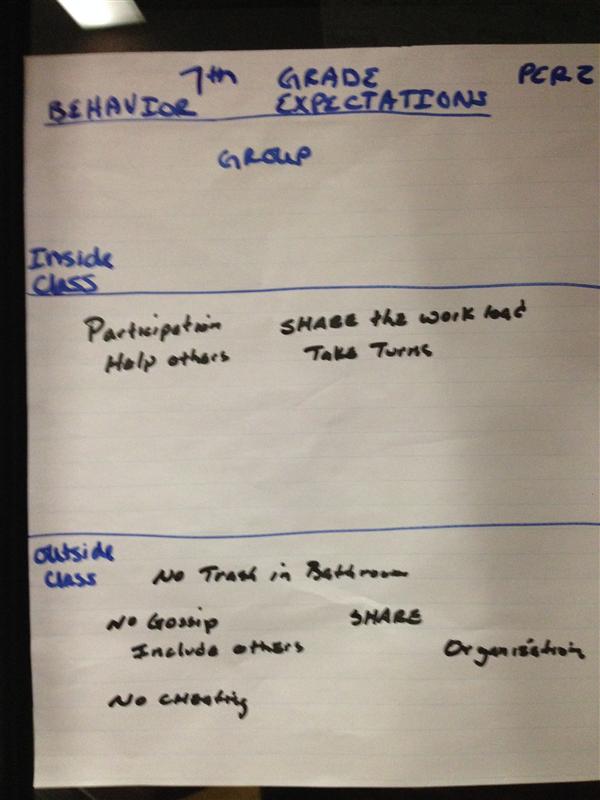 7th GRADE PER 2
BEHAVIOR EXPECTATIONS
GROUP
Inside
Class
Participation SHARE the work load
Help others Take Turns
Outside
Class
No Trash in Bathroom
No Gossip SHARE
Include others Organization
No cheating